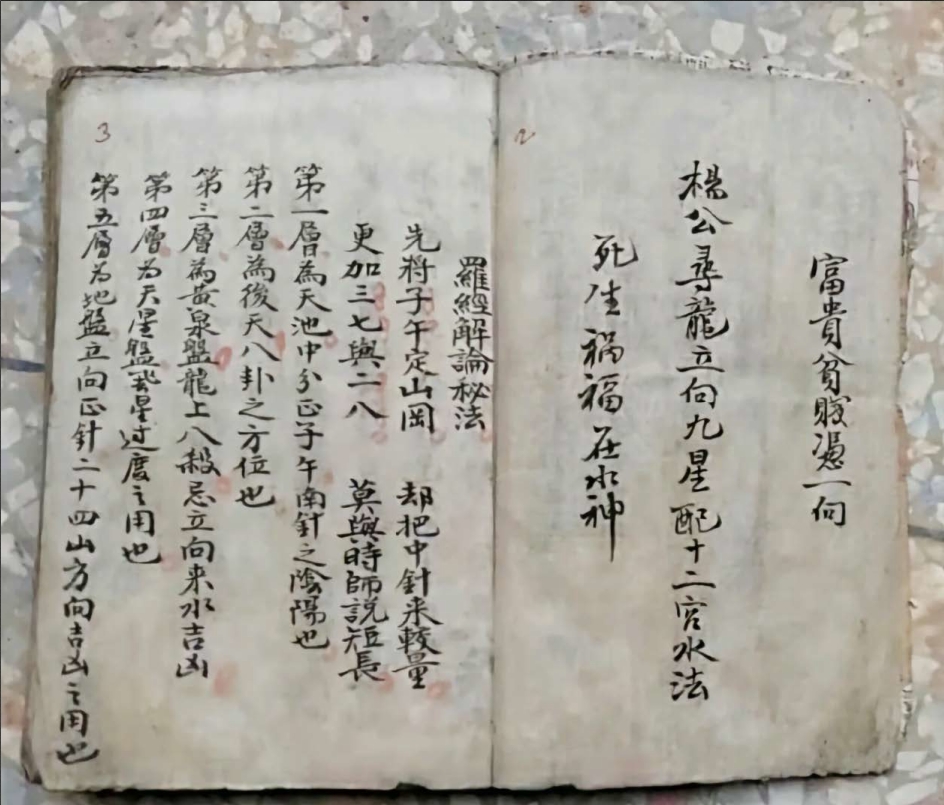 2
富貴貧賤憑一向
楊公尋龍立向九星配十二宮水法
死生禍福在水神
3
羅經解論秘法
先將子午定山岡 却把中針来較量
更加三七與二八 莫與時師説短長
第一層為天池中分正子午南針之陰陽也
第二層為後天八卦之方位也
第三層為黃泉盤龍上八殺忌立向来水吉凶
第四層为天星盤 星过度之用也
第五層为地盤立向正針二十四山方向吉凶之用也